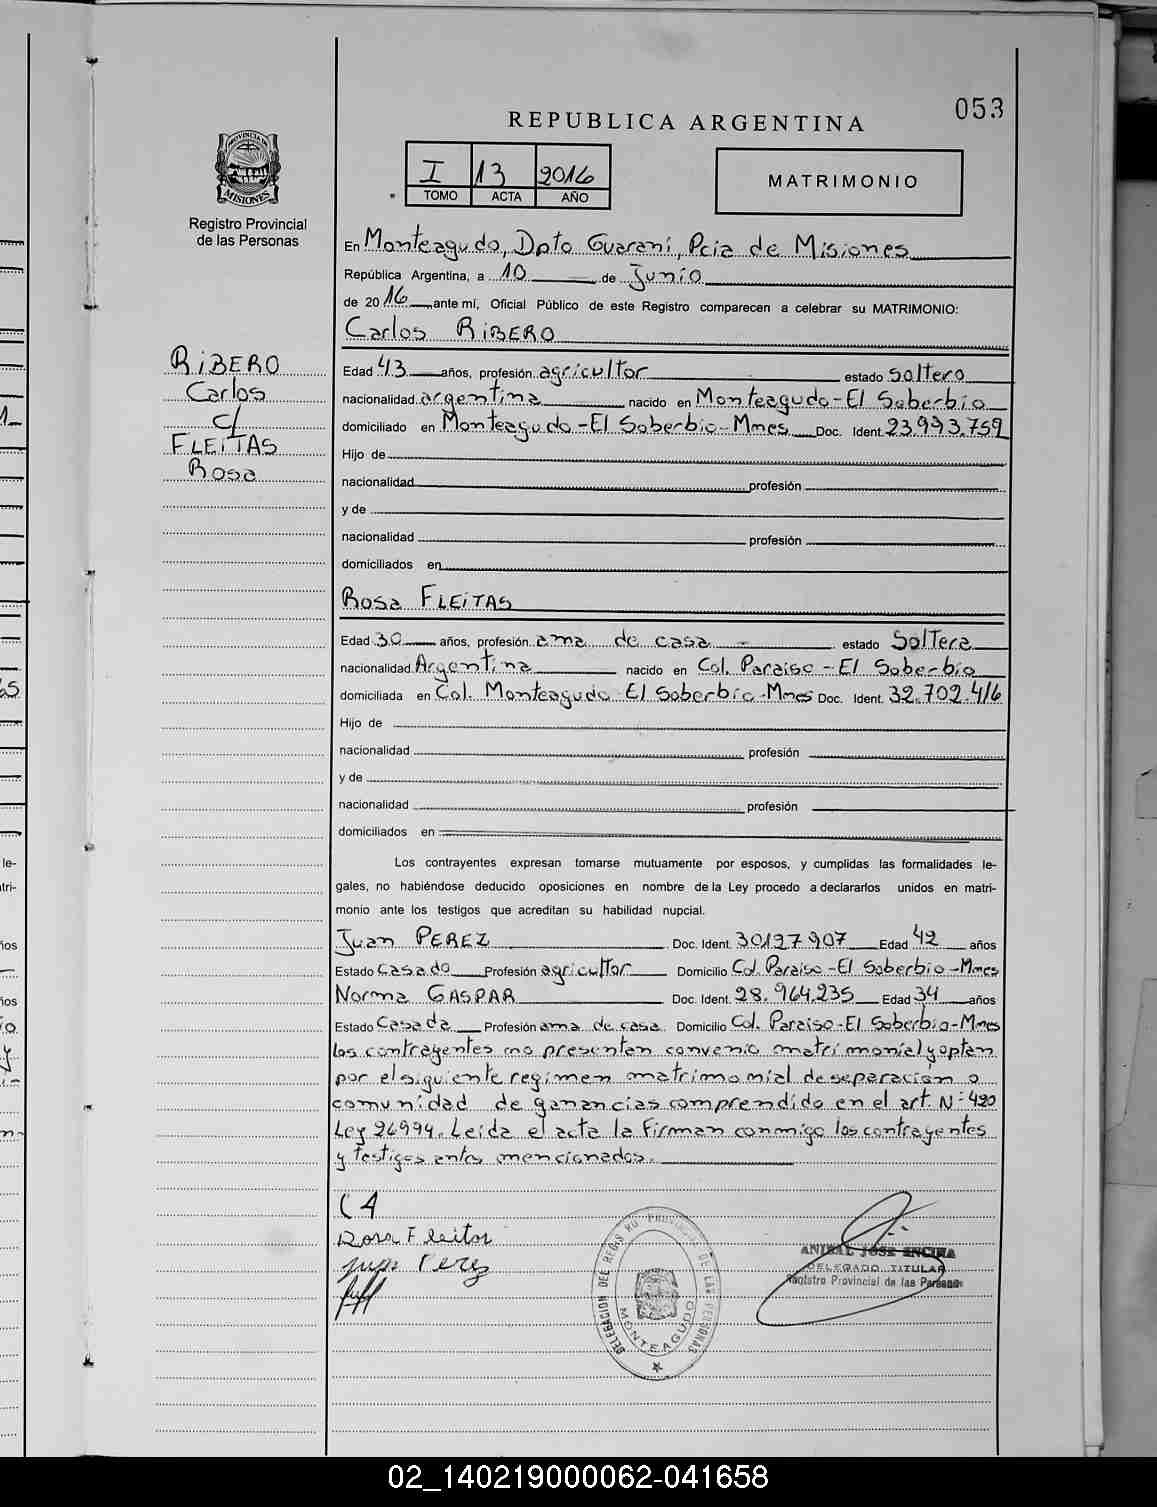 053
REPUBLICA ARGENTINA
PROVINCIA DE MISIONES
Registro Provincial
de las Personas
I 13 2016
TOMO ACTA AÑO
MATRIMONIO
En Monteagudo, Dpto Guaraní, Pcia de Misiones
República Argentina, a 10 de Junio
de 2016 ante mí, Oficial Público de este Registro comparecen a celebrar su MATRIMONIO:
Carlos RiBERO
RiBERO
Carlos
c/
FLEiTAS
Rosa
Edad 43 años, profesión agricultor estado Soltero
nacionalidad argentina nacido en Monteagudo-El Soberbio
domiciliado en Monteagudo-El Soberbio-Mnes Doc. Ident. 23.993.759
Hijo de
nacionalidad profesión
y de
nacionalidad profesión
domiciliados en
Rosa FLEiTAS
Edad 30 años, profesión ama de casa - estado Soltera
nacionalidad Argentina nacido en Col. Paraiso - El Soberbio
domiciliada en Col. Monteagudo El Soberbio-Mnes Doc. Ident. 32.702.416
Hijo de
nacionalidad profesión
y de
nacionalidad profesión
domiciliados en
Los contrayentes expresan tomarse mutuamente por esposos, y cumplidas las formalidades le-
gales, no habiéndose deducido oposiciones en nombre de la Ley procedo a declararlos unidos en matri-
monio ante los testigos que acreditan su habilidad nupcial.
Juan PEREZ Doc. Ident. 30127907 Edad 42 años
Estado Casado Profesión agricultor Domicilio Col. Paraiso-El Soberbio-Mnes
Norma GASPAR Doc. Ident. 28.964.235 Edad 34 años
Estado Casada Profesión ama de casa Domicilio Col. Paraiso-El Soberbio-Mnes
los contrayentes no presentan convenio matrimonial y optan
por el siguiente regimen matrimonial de separación o
comunidad de ganancias comprendido en el art. N: 420
Ley 26994. Leida el acta la firman conmigo los contrayentes
y testigos antes mencionados.
C A
Rosa Fleitas
Juan Perez
DELEGACION DEL REGISTRO PROVINCIAL DE LAS PERSONAS
MONTEAGUDO
ANIBAL JOSE ENCINA
DELEGADO TITULAR
Registro Provincial de las Personas
02_140219000062-041658